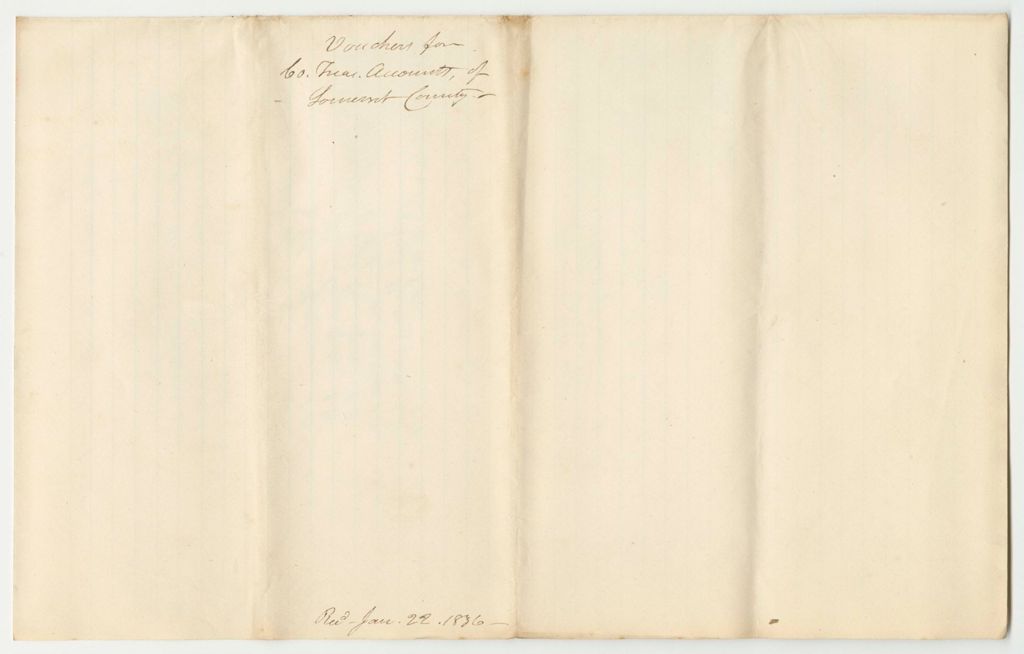 Vouchers for
Co. Treas. Accounts, of
Somerset County
Recd. Jan. 22. 1836